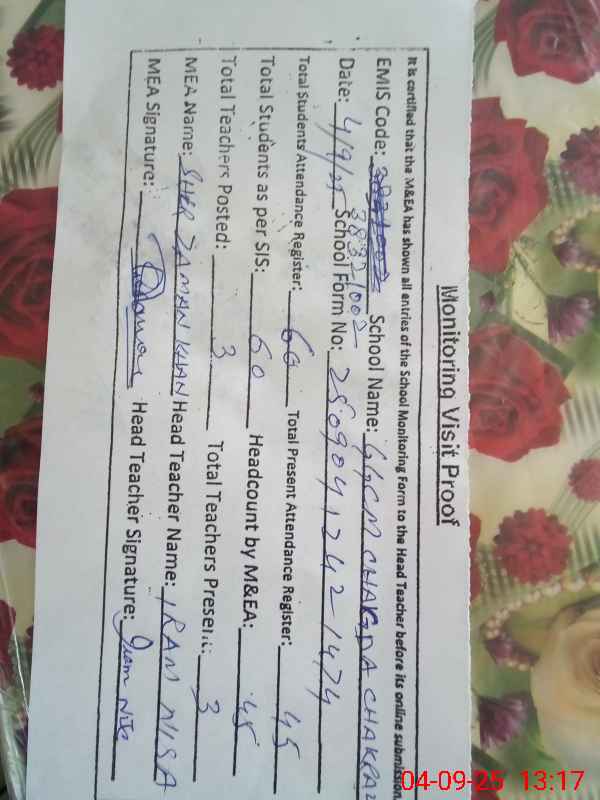 Monitoring Visit Proof
It is certified that the M&EA has shown all entries of the School Monitoring Form to the Head Teacher before its online submission.
EMIS Code: 38321002 School Name: GGCM CHAGDA CHAKRA
Date: 4/9/25 School Form No: 2509041242-1474
Total Students Attendance Register: 60 Total Present Attendance Register: 45
Total Students as per SIS: 60 Headcount by M&EA: 45
Total Teachers Posted: 3 Total Teachers Present: 3
MEA Name: SHER ZAMAN KHAN Head Teacher Name: IRAM NISA
MEA Signature: Head Teacher Signature: Iram Nisa
04-09-25 13:17